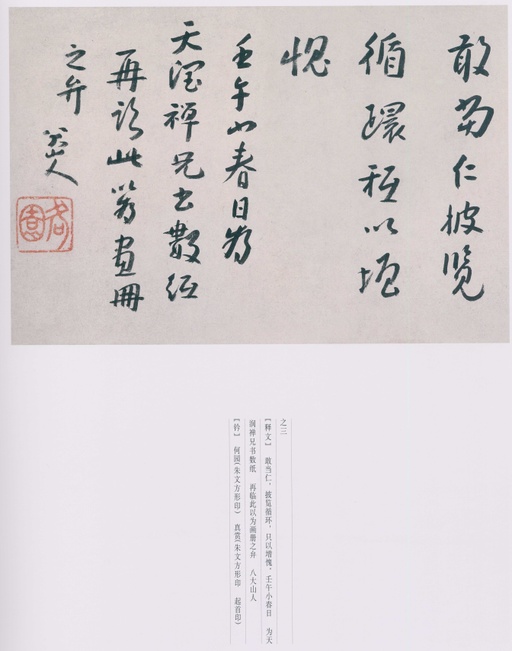 敢當仁披覽
循環秖以增
愧
壬午小春日為
天潤禪兄書數紙
再臨此以為畫冊
之弁 八大山人
何園
之三
【释文】 敢当仁，披览循环，只以增愧，壬午小春日 为天
润禅兄书数纸 再临此以为画册之弁 八大山人
【钤】 何园(朱文方形印) 真赏(朱文方形印 起首印)